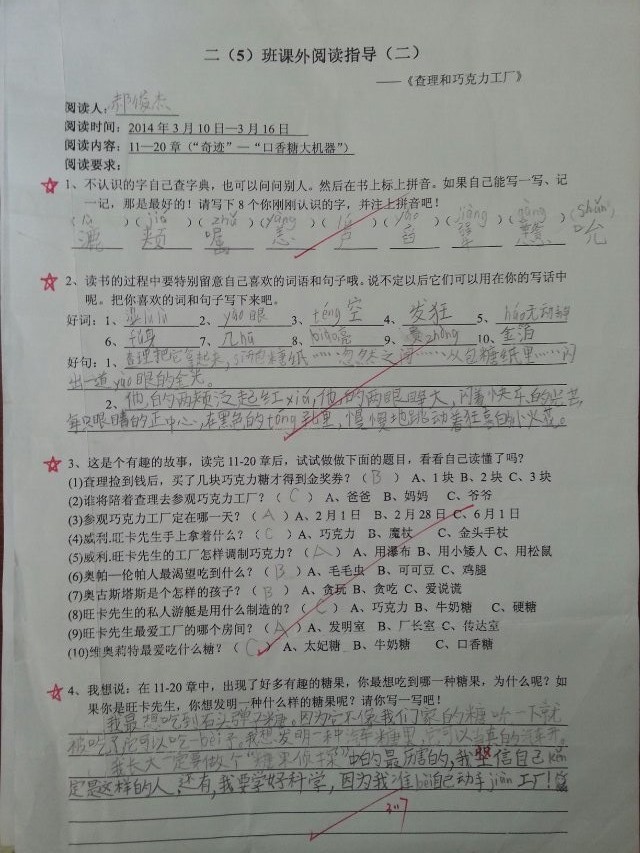 二（5）班课外阅读指导（二）
——《查理和巧克力工厂》
阅读人：郝俊杰
阅读时间：2014年3月10日—3月16日
阅读内容：11—20章（“奇迹”—“口香糖大机器”）
阅读要求：
1、不认识的字自己查字典，也可以问问别人。然后在书上标上拼音。如果自己能写一写、记
一记，那是最好的！请写下8个你刚刚认识的字，并注上拼音吧！
（ ）（jiá）（zhǔ）（yàng）（lú）（yǎo）（ ）（ ）（shǔn）
漉 颊 嘱 恙 舀 孽 吮
2、读书的过程中要特别留意自己喜欢的词语和句子哦。说不定以后它们可以用在你的写话中
呢。把你喜欢的词和句子写下来吧。
好词：1、 2、yào眼 3、téng空 4、发狂 5、háo无
6、 7、 8、 9、 10、金箔
好句：1、查理把它拿起来，糖纸……忽然之间……从包糖纸里……闪
出一道yào眼的金光。
2、他的两颊泛起红 ，他的两眼睁大，闪着快乐的光芒，
每只眼睛的正中心，在黑色的tóng孔里，慢慢地跳动着狂喜的小火花。
3、这是个有趣的故事，读完11-20章后，试试做做下面的题目，看看自己读懂了吗？
(1)查理捡到钱后，买了几块巧克力糖才得到金奖券？（B）A、1块 B、2块 C、3块
(2)谁将陪着查理去参观巧克力工厂？（C）A、爸爸 B、妈妈 C、爷爷
(3)参观巧克力工厂定在哪一天？（A）A、2月1日 B、2月28日 C、6月1日
(4)威利.旺卡先生手上拿着什么？（C）A、巧克力 B、魔杖 C、金头手杖
(5)威利.旺卡先生的工厂怎样调制巧克力？（A）A、用瀑布 B、用小矮人 C、用松鼠
(6)奥帕—伦帕人最渴望吃到什么？（B）A、毛毛虫 B、可可豆 C、鸡腿
(7)奥古斯塔斯是个怎样的孩子？（B）A、贪玩 B、贪吃 C、爱说谎
(8)旺卡先生的私人游艇是用什么制造的？（C）A、巧克力 B、牛奶糖 C、硬糖
(9)旺卡先生最爱工厂的哪个房间？（A）A、发明室 B、厂长室 C、传达室
(10)维奥莉特最爱吃什么糖？（C）A、太妃糖 B、牛奶糖 C、口香糖
4、我想说：在11-20章中，出现了好多有趣的糖果，你最想吃到哪一种糖果，为什么呢？如
果你是旺卡先生，你想发明一种什么样的糖果呢？请你写一写吧！
我最想吃到石头弹子糖。因为它不像我们家的糖吃一下就
被吃 可以吃一bèi子。我想发明一种汽车糖果，它可以当真的汽车开。
我长大一定要做个“糖果侦探”中的最厉害的，我坚信自己kěn
定是这样的人，还有，我要学好科学，因为我准bèi自己动手jiàn工厂！
3.17